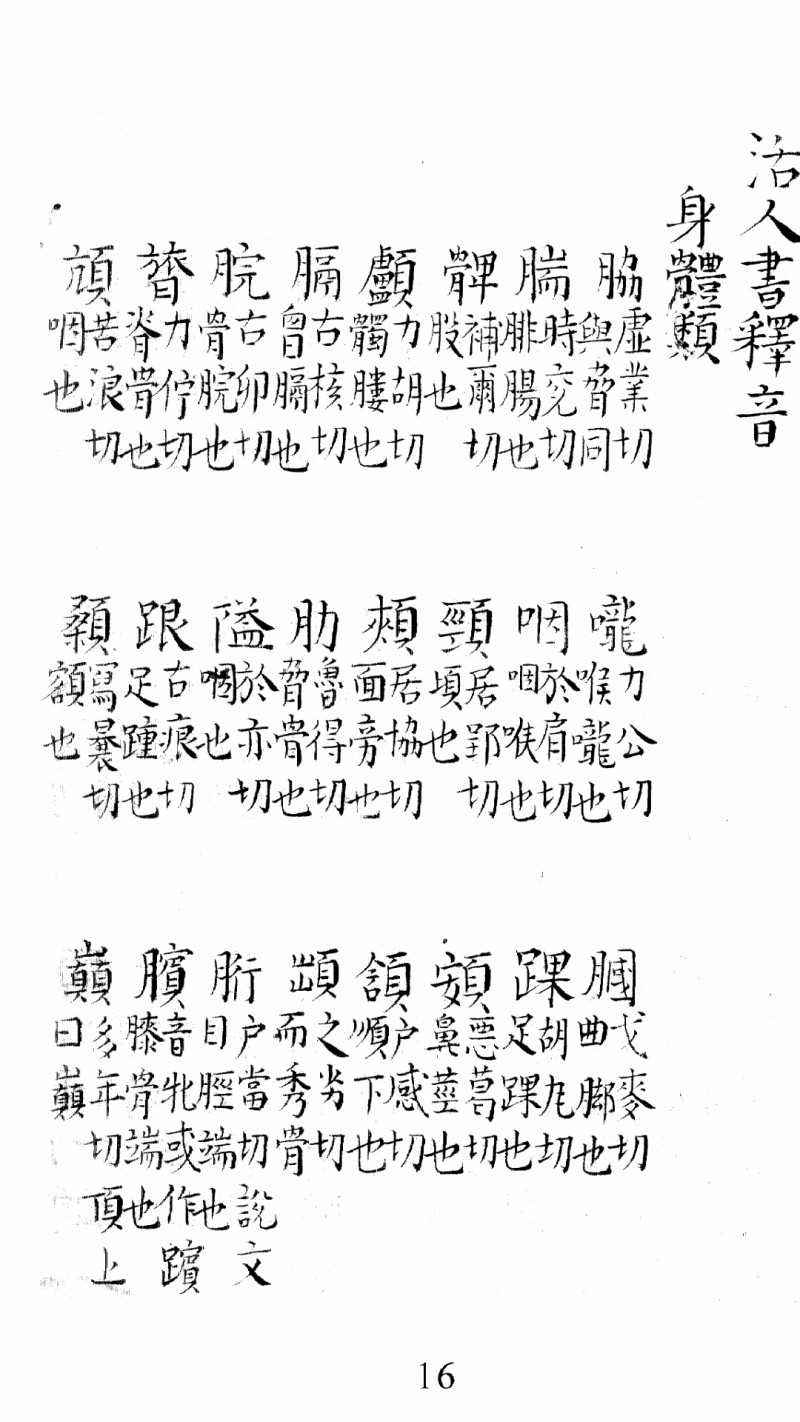 活人書釋音
身體類
脇虛業切與脅同　嚨力公切喉嚨也　膕戈麥切曲脚也
腨時兗切腓腸也　咽於肩切咽喉也　踝胡九切足踝也
髀補爾切股也　頸居郢切項也　頞惡葛切鼻莖也
顱力胡切髑髏也　頰居協切面旁也　頷户感切順下也
膈古核切胷膈也　肋魯得切脅骨也　䪼之劣切而秀骨
脘古卯切骨脘也　隘於亦切咽也　胻户當切說文目脛端也
膂力佇切脊骨也　跟古痕切足踵也　臏音牝或作䠙膝骨端也
頏苦浪切咽也　顙寫曩切額也　巔多年切頂上曰巔
16